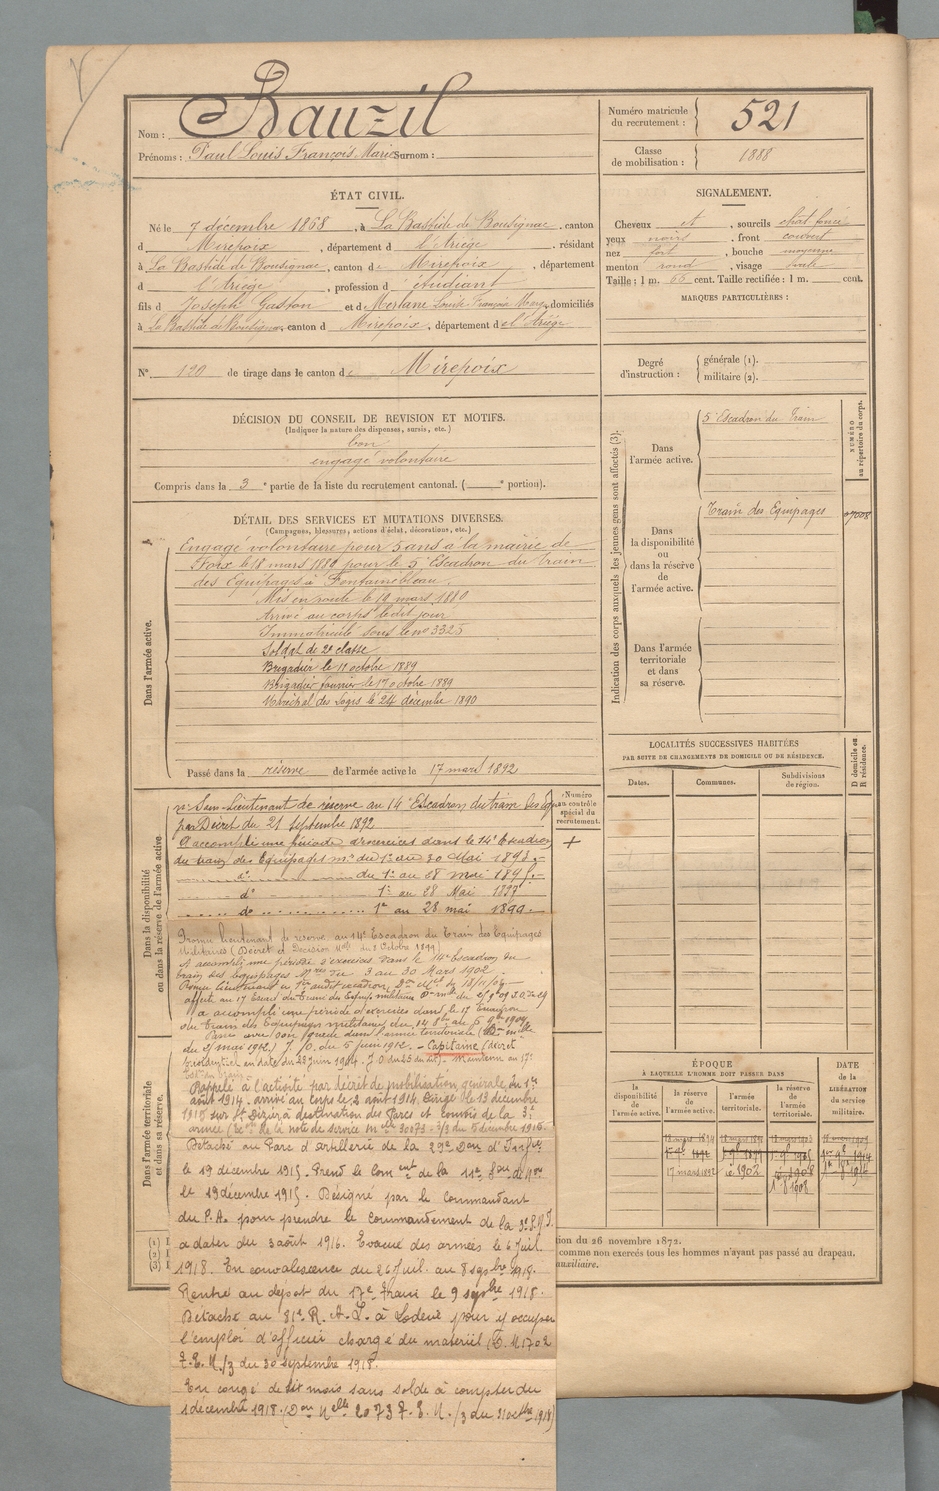 Nom : Bauzil
Prénoms : Paul Louis François Marie Surnom :
Numéro matricule du recrutement : 521
Classe de mobilisation : 1888
ÉTAT CIVIL.
Né le 7 décembre 1868, à La Bastide de Bousignac, canton
d Mirepoix, département d l'Ariège, résidant
à La Bastide de Bousignac, canton de Mirepoix, département
d l'Ariège, profession d étudiant
fils d Joseph Gaston et d Mertane Louise Françoise Mary, domiciliés
à La Bastide de Bousignac, canton d Mirepoix, département de l'Ariège
N° 120 de tirage dans le canton de Mirepoix
SIGNALEMENT.
Cheveux et, sourcils chât. foncé
yeux noirs, front couvert
nez fort, bouche moyenne
menton rond, visage ovale
Taille : 1 m. 65 cent. Taille rectifiée : 1 m. cent.
MARQUES PARTICULIÈRES :
Degré d'instruction : générale (1).
militaire (2).
DÉCISION DU CONSEIL DE REVISION ET MOTIFS.
(Indiquer la nature des dispenses, sursis, etc.)
bon
engagé volontaire
Compris dans la 3e partie de la liste du recrutement cantonal. ( e portion).
DÉTAIL DES SERVICES ET MUTATIONS DIVERSES.
(Campagnes, blessures, actions d'éclat, décorations, etc.)
Dans l'armée active.
Engagé volontaire pour 5 ans à la mairie de
Foix le 18 mars 1889 pour le 5e Escadron du train
des Equipages à Fontainebleau.
Mis en route le 19 mars 1889
Arrivé au corps ledit jour
Immatriculé sous le no 3325
Soldat de 2e classe
Brigadier le 17 octobre 1889
Brigadier fourrier le 17 octobre 1889
Maréchal des Logis le 24 décembre 1890
Passé dans la réserve de l'armée active le 17 mars 1892
Indication des corps auxquels les jeunes gens sont affectés (3).
NUMÉRO au répertoire du corps.
Dans l'armée active.
5e Escadron du Train
Dans la disponibilité ou dans la réserve de l'armée active.
Train des Equipages
Dans l'armée territoriale et dans sa réserve.
LOCALITÉS SUCCESSIVES HABITÉES
PAR SUITE DE CHANGEMENTS DE DOMICILE OU DE RÉSIDENCE.
Dates. Communes. Subdivisions de région.
D domicile ou R résidence.
Dans la disponibilité ou dans la réserve de l'armée active.
Numéro au contrôle spécial du recrutement.
+
Sous-Lieutenant de réserve au 14e Escadron du train des Eq
par Décret du 21 septembre 1892
A accompli une période d'exercices dans le 14e Escadron
du train des Equipages mres du 1er au 30 Mai 1893.
do du 1er au 28 mai 1895.
do 1er au 28 Mai 1897
do 1er au 28 mai 1899.
Promu lieutenant de réserve au 14e Escadron du Train des Equipages
Militaires (Décret et Décision Melle du 2 Octobre 1899)
A accompli une période d'exercices dans le 14e Escadron du
train des Equipages Mres du 3 au 30 Mars 1902.
a accompli une période d'exercices dans le 17 Escadron
du Train des Equipages militaires du 14 8bre au 5 9bre
Passé avec son grade dans l'armée territoriale
du 2 mai 1912.) J. O. du 5 juin 1912. - Capitaine (décret
présidentiel en date du 23 juin 1914. J. O du 25 du dit). - Maintenu au 17e
Dans l'armée territoriale et dans sa réserve.
Rappelé à l'activité par décret de mobilisation générale du 1er
août 1914. arrivé au corps le 2 août 1914. Dirigé le 13 décembre
1915 sur St Dizier à destination des Parcs et convois de la 3e
armée
Détaché au Parc d'artillerie de la
le 19 décembre 1915. Prend le Comt de la 11e
le 19 décembre 1915. Désigné par le Commandant
du P.A. pour prendre le commandement de la 3e S.M.I.
a dater du 3 août 1916. Evacué des armées le 6 Juil.
1918. En convalescence du 26 Juil. au 8
Rentré au dépôt du 17e train le 9 septbre 1918.
Détaché au 81e R. A. L. à Lodève pour y occuper
l'emploi d'officier chargé du matériel
du 30 septembre 1918.
En congé de six mois sans solde à compter du
1 décembre 1918.
ÉPOQUE
À LAQUELLE L'HOMME DOIT PASSER DANS
la disponibilité de l'armée active.
la réserve de l'armée active.
l'armée territoriale.
la réserve de l'armée territoriale.
DATE de la LIBÉRATION du service militaire.
17 mars 1892
1902
1908
du 26 novembre 1872.
comme non exercés tous les hommes n'ayant pas passé au drapeau.
(1)
(2)
(3)